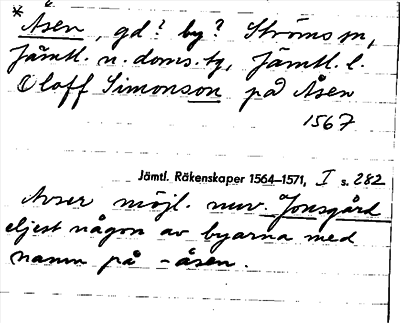 * Åsen, gd? by? Ströms sn,
Jämtl. n. doms. tg, Jämtl. l.
Oloff Simonson på Åsen
1567
Jämtl. Räkenskaper 1564–1571, I s. 282
Avser möjl. nuv. Jonsgård
eljest någon av byarna med
namn på -åsen.